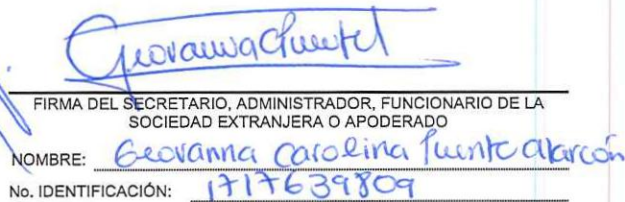 GeovannaPuenteA
FIRMA DEL SECRETARIO, ADMINISTRADOR, FUNCIONARIO DE LA
SOCIEDAD EXTRANJERA O APODERADO
NOMBRE: Geovanna Carolina Puente Alarcón
No. IDENTIFICACIÓN: 1717639809